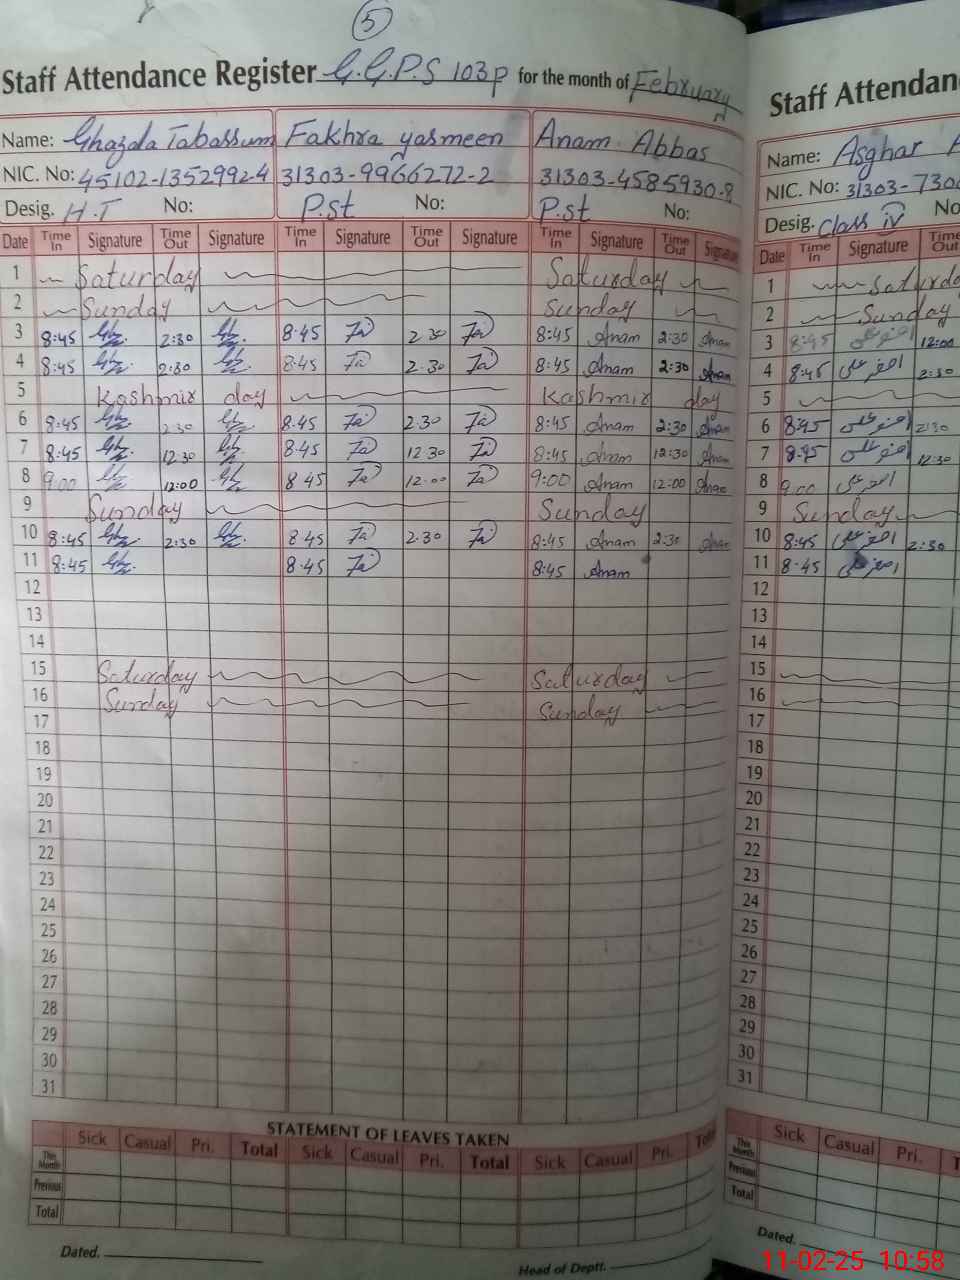 5
Staff Attendance Register G.G.P.S 103p for the month of February
Name: Ghazala Tabassum Fakhra yasmeen Anam Abbas
NIC. No: 45102-1352992-4 31303-9966272-2 31303-4585930-8
Desig. H.T No: P.st No: P.st No:
Date Time In Signature Time Out Signature Time In Signature Time Out Signature Time In Signature Time Out Signature
1 Saturday Saturday
2 Sunday Sunday
3 8:45 2:30 8.45 2.30 8:45 Anam 2:30 Anam
4 8:45 2:30 8:45 2.30 8:45 Anam 2:30 Anam
5 Kashmir day Kashmir day
6 8:45 2:30 8.45 2.30 8:45 Anam 2:30 Anam
7 8:45 12:30 8.45 12.30 8:45 Anam 12:30 Anam
8 9:00 12:00 8 45 12.00 9:00 Anam 12:00 Anam
9 Sunday Sunday
10 8:45 2:30 8 45 2.30 8:45 Anam 2:30 Anam
11 8:45 8 45 8:45 Anam
12
13
14
15 Saturday Saturday
16 Sunday Sunday
17
18
19
20
21
22
23
24
25
26
27
28
29
30
31
STATEMENT OF LEAVES TAKEN
Sick Casual Pri. Total Sick Casual Pri. Total Sick Casual Pri. Total
This Month
Previous
Total
Dated. Head of Deptt.
Staff Attendan
Name: Asghar A
NIC. No: 31303-730
Desig. Class iv No
Date Time In Signature Time Out
1 Saturda
2 Sunday
3 8:45 اصغر علی 12:00
4 8:45 اصغر علی 2:30
5
6 8:45 اصغر علی 2:30
7 8:45 اصغر علی 12:30
8 9:00 اصغر علی
9 Sunday
10 8:45 اصغر علی 2:30
11 8.45 اصغر علی
12
13
14
15
16
17
18
19
20
21
22
23
24
25
26
27
28
29
30
31
Sick Casual Pri. T
This Month
Previous
Total
Dated.
11-02-25 10:58